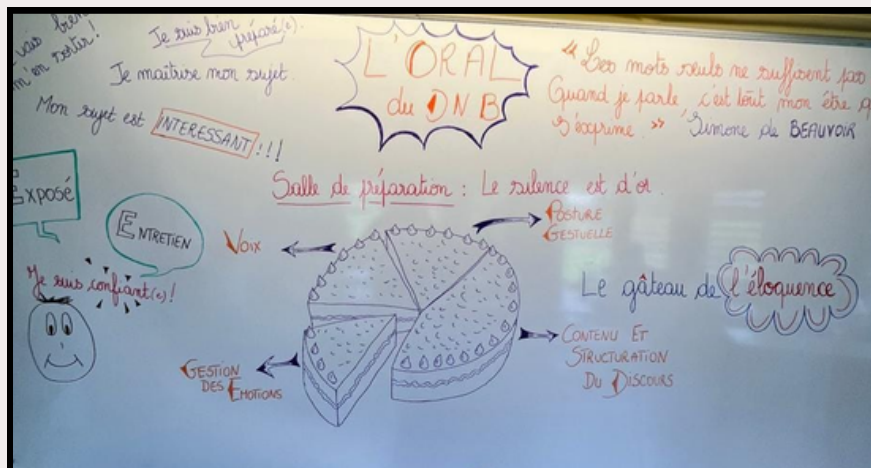 vais bien
m'en sortir !
Je suis bien
préparé(e).
Je maîtrise mon sujet.
Mon sujet est INTERESSANT !!!
L'ORAL
du DNB
" Les mots seuls ne suffisent pas
Quand je parle, c'est tout mon être q
s'exprime. " Simone de BEAUVOIR
Salle de préparation : Le silence est d'or.
Exposé
ENTRETIEN
Je suis confiant(e) !
VOIX
POSTURE
GESTUELLE
Le gâteau de l'éloquence
GESTION
DES EMOTIONS
CONTENU ET
STRUCTURATION
DU DISCOURS